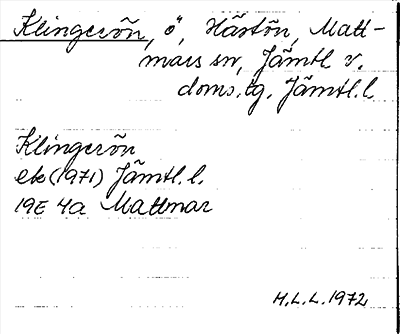 Klingerön, ö, Härtön, Matt-
mars sn, Jämtl v.
doms.tg. Jämtl.l.
Klingerön
ek (1971) Jämtl.l.
19E 4a Mattmar
H.L.L. 1972